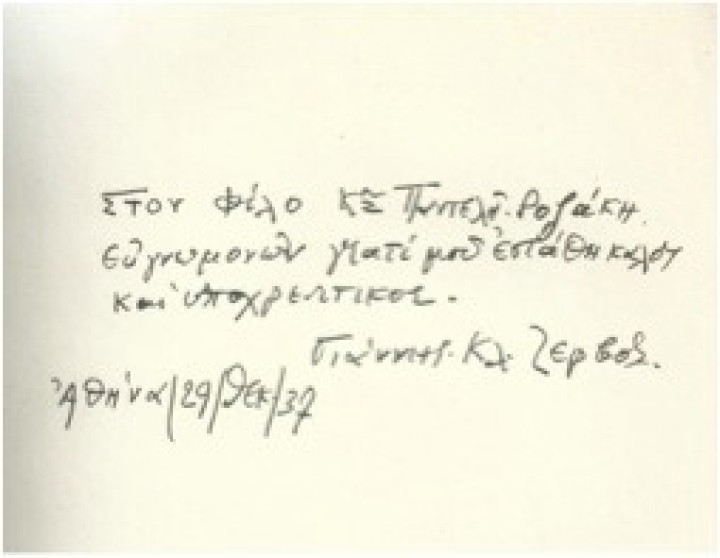 Στον Φίλο Κο Παντελῆ Ροζάκη
εὐγνωμονῶν γιατί μοῦ ἐστάθη καλός
καὶ ὑποχρεωτικός.
Γιάννης Κλ. Ζερβός.
Ἀθήνα/29/Δεκ/37